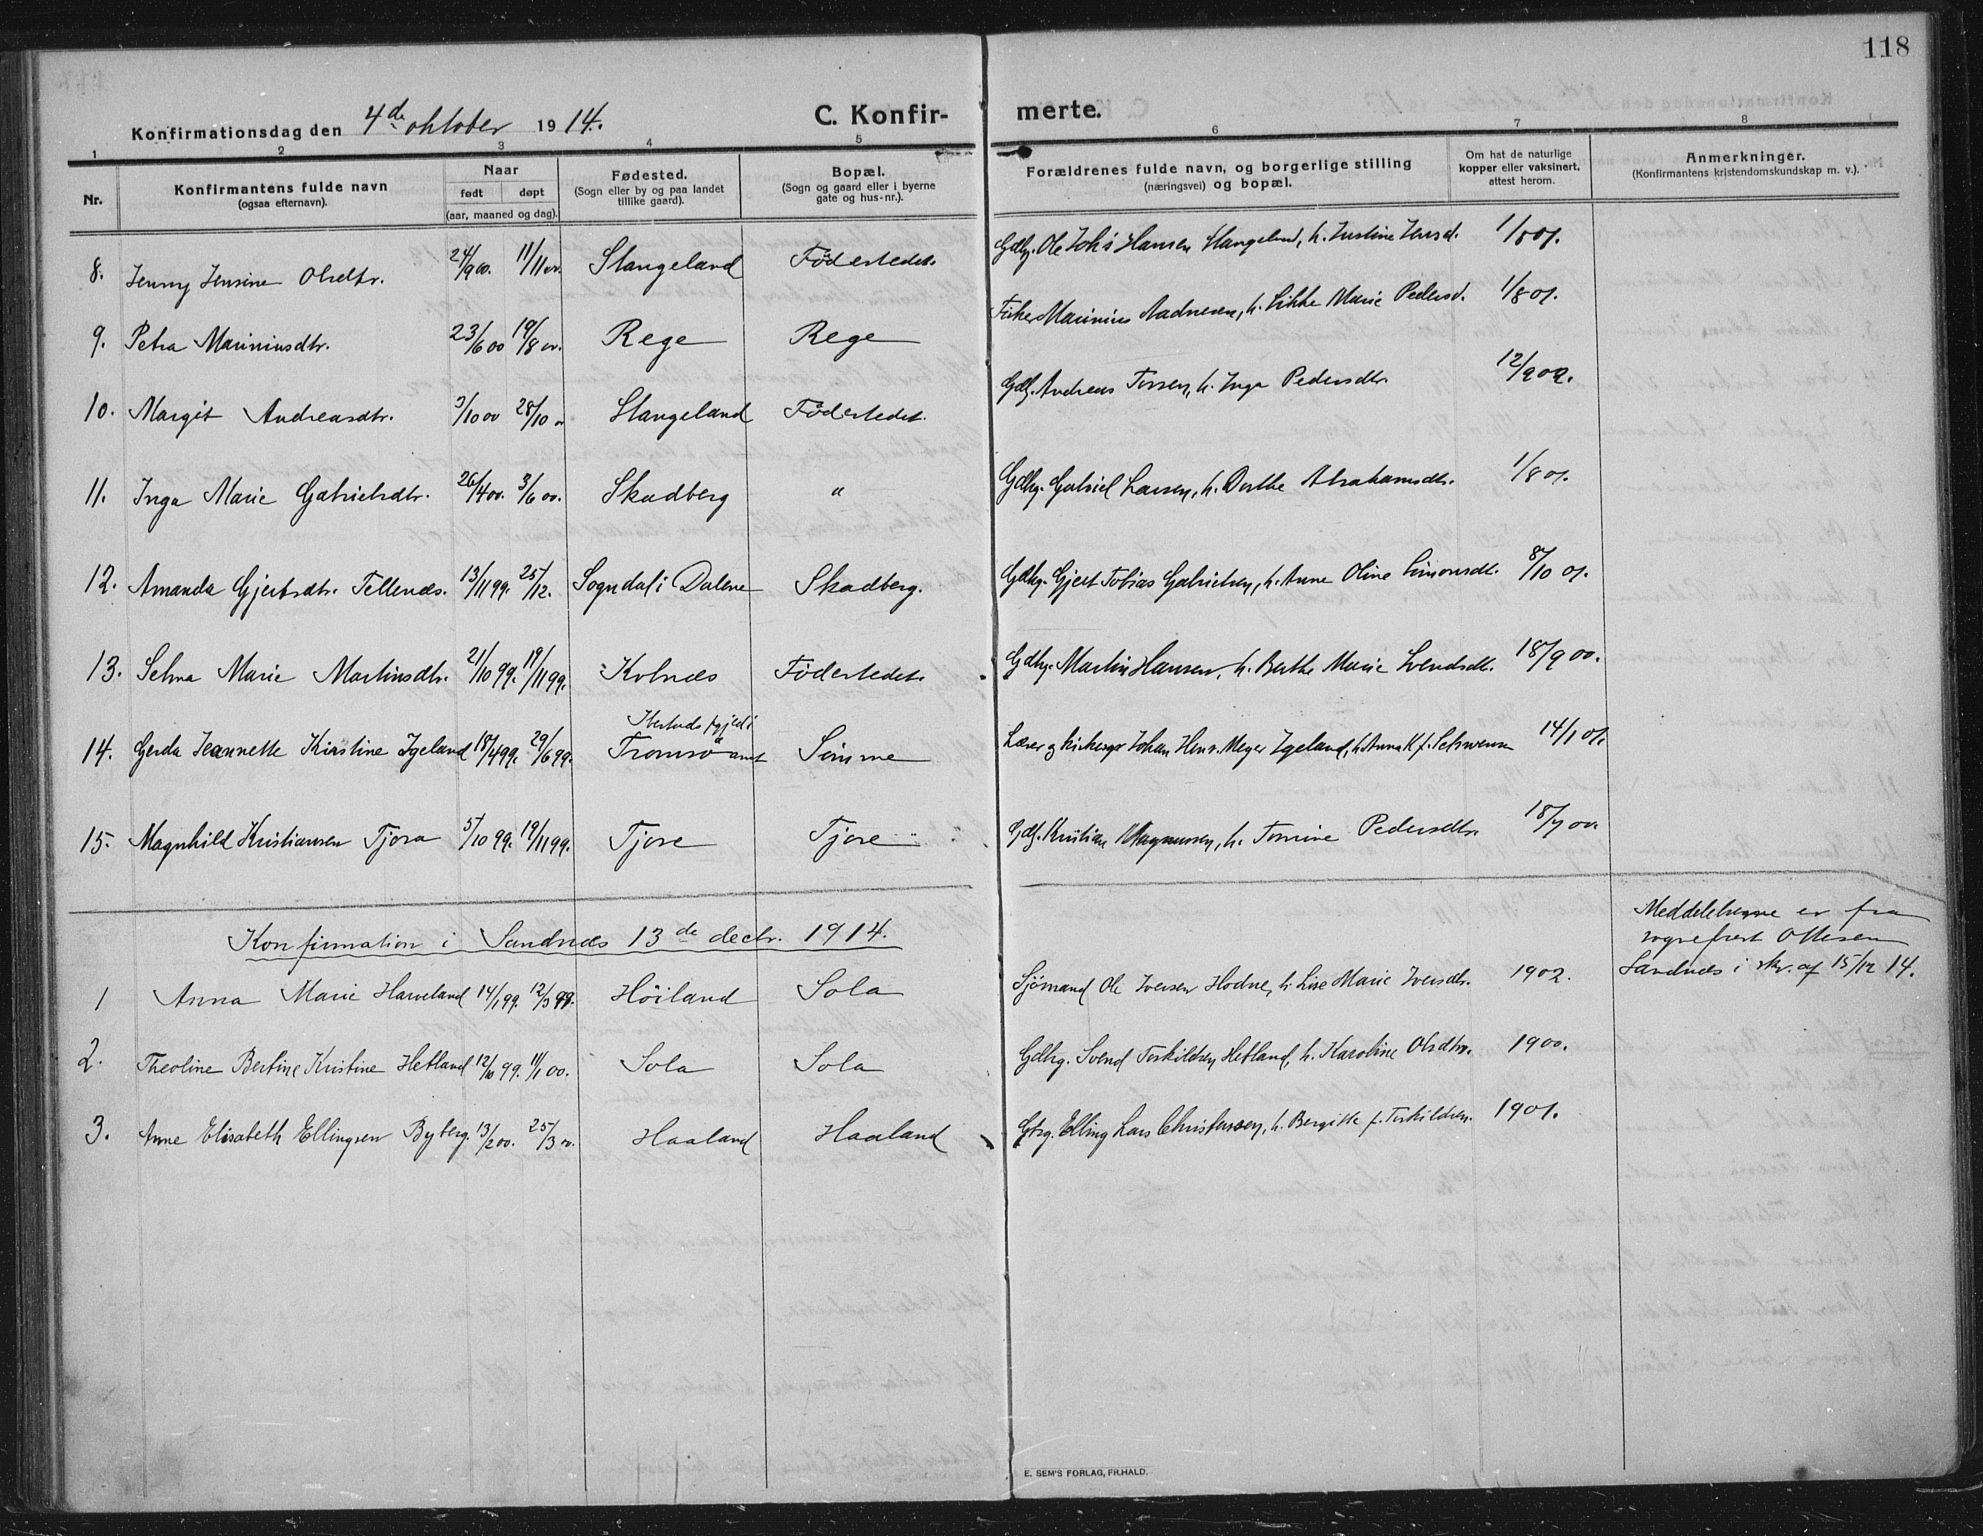 118
Konfirmationsdag den 4de oktober 1914.
C. Konfirmerte.
1 2 3 4 5 6 7 8
Nr.
Konfirmantens fulde navn
(ogsaa efternavn).
Naar
født døpt
(aar, maaned og dag).
Fødested.
(Sogn eller by og paa landet
tillike gaard).
Bopæl.
(Sogn og gaard eller i byerne
gate og hus-nr.).
Forældrenes fulde navn, og borgerlige stilling
(næringsvei) og bopæl.
Om hat de naturlige
kopper eller vaksinert,
attest herom.
Anmerkninger.
(Konfirmantens kristendomskundskap m. v.).
8. Jenny Jensine Olsdtr. 24/9 00. 11/11 00. Stangeland Föderstedet. Gdbr. Ole Johs Hansen Stangeland, h. Justine Jensd. 1/8 01.
9. Petra Mariniusdtr. 23/6 00 19/8 00. Rege Rege Fisker Marinius Aadnesen, h. Sikke Marie Pedersd. 1/8 01.
10. Margit Andreasdtr. 3/10 00 28/10 00 Stangeland Föderstedet. Gdb. Andreas Torsen, h. Inga Pedersdtr. 12/9 02.
11. Inga Marie Gabrielsdtr. 26/4 00. 3/6 00. Skadberg " Gdbr. Gabriel Larsen, h. Dorthe Abrahamsdtr. 1/8 01.
12. Amanda Gjertsdtr. Tellenæs. 13/11 99. 25/12. Sogndal i Dalene Skadberg. Gdbr. Gjert Tobias Gabrielsen, h. Anne Oline Simonsdt. 8/10 01.
13. Selma Marie Martinsdtr. 21/10 99. 19/11 99. Kolnæs Föderstedet. Gdbr. Martin Hansen, h. Berthe Marie Svendsdt. 18/9 00.
14. Gerda Jeannette Kirstine Igeland 18/4 99. 29/6 99. Ibestads pgjeld i Tromsö amt Sömme Lærer og kirkesgr Johan Henr. Meyer Igeland, h. Anna K f. Schwensen 14/1 01.
15. Magnhild Kristiansen Tjora 5/10 99. 19/11 99. Tjore Tjore Gdb. Kristian Magnussen, h. Tomine Pedersdtr. 18/7 00.
Konfirmation i Sandnæs 13de decbr. 1914.
Meddelelserne er fra
sogneprest Ottesen
Sandnæs i skr. af 15/12 14.
1 Anna Marie Harveland 14/1 99. 12/3 99. Höiland Sola Sjömand Ole Iversen Hodne, h. Lise Marie Iversdtr. 1902.
2. Theoline Bertine Kristine Hetland 12/10 99. 11/1 00. Sola Sola Gdbrg. Svend Torkildsen Hetland, h. Karoline Olsdtr. 1900.
3. Anne Elisabeth Ellingsen Byberg. 13/2 00. 25/3 00. Haaland Haaland Gbrg. Elling Lars Christensen, h. Bergitte f. Torkildsen. 1901.
E. SEM'S FORLAG, FR.HALD.